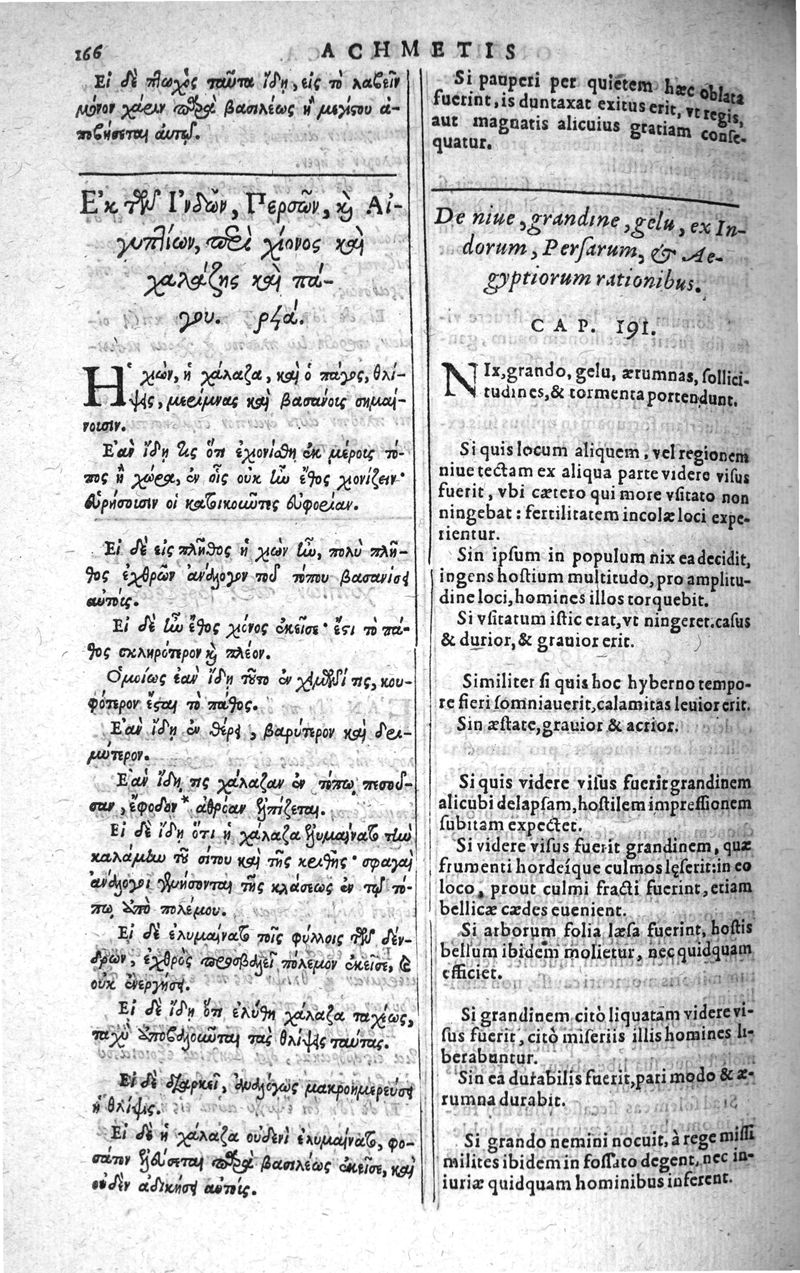 166
ACHMETIS
Εἰ δὲ πτωχὸς ταῦτα ἴδη, εἰς τὸ λαβεῖν
μόνον χάριν παρὰ βασιλέως ἢ μεγίστου ἀ-
ποβήσεται αὐτῷ.
Ἐκ τῶν Ἰνδῶν, Περσῶν, καὶ Αἰ-
γυπτίων, περὶ χίονος καὶ
χαλάζης καὶ πά-
γου. ρϟά.
Ἡ χιὼν, ἡ χάλαζα, καὶ ὁ πάγος, θλί-
ψις, μερίμνας καὶ βασάνοις σημαί-
νουσιν.
Ἐὰν ἴδη τις ὅτι ἐχιονίσθη ἐκ μέροις τό-
πος ἢ χώρα, ἐν οἷς οὐκ ἦν ἔθος χιονίζειν·
εὑρήσουσιν οἱ κατοικοῦντες εὐφορίαν.
Εἰ δὲ εἰς πλῆθος ἡ χιὼν ἦν, πολὺ πλῆ-
θος ἐχθρῶν ἀνάλογον τοῦ τόπου βασανίσει
αὐτούς.
Εἰ δὲ ἦν ἔθος χιόνος ἐκεῖσε· ἔστι τὸ πά-
θος σκληρότερον καὶ πλέον.
Ὁμοίως ἐὰν ἴδη τοῦτο ἐν χειμῶνί τις, κου-
φότερον ἔσται τὸ πάθος.
Ἐὰν ἴδη ἐν θέρει, βαρύτερον καὶ δει-
μώτερον.
Ἐὰν ἴδη τις χάλαζαν ἐν τόπῳ πεσοῦ-
σαν, ἔφοδον* ἀθρόαν ἐλπίζεται.
Εἰ δὲ ἴδη ὅτι ἡ χάλαζα ἐλυμαίνατο τὴν
καλάμην τοῦ σίτου καὶ τῆς κριθῆς· σφαγαὶ
ἀνάλογοι γενήσονται τῆς κλάσεως ἐν τῷ τό-
πῳ ὑπὸ πολέμου.
Εἰ δὲ ἐλυμαίνατο τοῖς φύλλοις τῶν δέν-
δρων, ἐχθρὸς προσβαλεῖ πόλεμον ἐκεῖσε, καὶ
οὐκ ἐνεργήσει.
Εἰ δὲ ἴδη ὅτι ἐλύθη χάλαζα ταχέως,
ταχὺ ὑποβαλοῦνται τὰς θλίψεις ταύτας.
Εἰ δὲ διαρκεῖ, ἀναλόγως μακροημερεύσει
ἡ θλίψις.
Εἰ δὲ ἡ χάλαζα οὐδενὶ ἐλυμαίνατο, φο-
σάτον ἐλεύσεται παρὰ βασιλέως ἐκεῖσε, καὶ
οὐδὲν ἀδικήσει αὐτούς.
Si pauperi per quietem hæc oblata
fuerint, is duntaxat exitus erit, vt regis,
aut magnatis alicuius gratiam conse-
quatur.
De niue, grandine, gelu, ex In-
dorum, Persarum, & Ae-
gyptiorum rationibus.
CAP. 191.
NIx, grando, gelu, ærumnas, sollici-
tudines, & tormenta portendunt.
Si quis locum aliquem, vel regionem
niue tectam ex aliqua parte videre visus
fuerit, vbi cætero qui more vsitato non
ningebat: fertilitatem incolæ loci expe-
rientur.
Sin ipsum in populum nix ea decidit,
ingens hostium multitudo, pro amplitu-
dine loci, homines illos torquebit.
Si vsitatum istic erat, vt ningeret. casus
& durior, & grauior erit.
Similiter si quis hoc hyberno tempo-
re fieri somniauerit, calamitas leuior erit.
Sin æstate, grauior & acrior.
Si quis videre visus fuerit grandinem
alicubi delapsam, hostilem impressionem
subitam expectet.
Si videre visus fuerit grandinem, quæ
frumenti hordeíque culmos lęserit: in eo
loco, prout culmi fracti fuerint, etiam
bellicæ cædes euenient.
Si arborum folia læsa fuerint, hostis
bellum ibidem molietur, nec quidquam
efficiet.
Si grandinem citò liquatam videre vi-
sus fuerit, citò miseriis illis homines li-
berabuntur.
Sin ea durabilis fuerit, pari modo & æ-
rumna durabit.
Si grando nemini nocuit, à rege missi
milites ibidem in fossato degent, nec in-
iuriæ quidquam hominibus inferent.